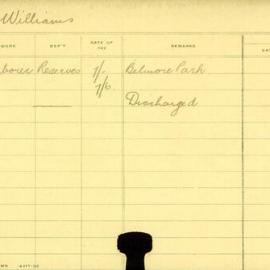 Williams
DEP'T
RATE OF PAY
REMARKS
borer Reserves 1/- Belmore Park
1/6. Discharged